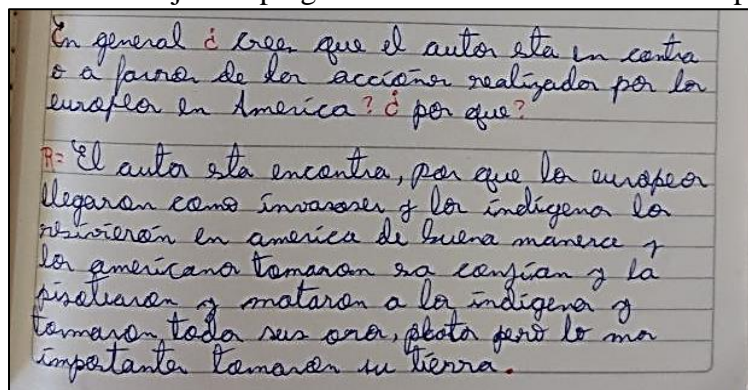 En general ¿ crees que el autor esta en contra
o a favor de los acciones realizados por los
europeos en America? ¿ por que?
R= El autor esta encontra, por que los europeos
llegaron como invasores y los indigenas los
resivieron en america de buena manera y
los americanos tomaron sa confian y la
pisotiaron y mataron a los indigenas y
tomaron todas sus oros, plata pero lo mas
importantes tomaron su tierra.